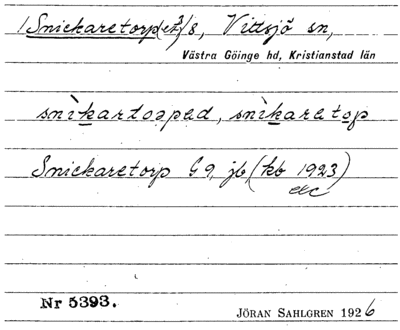 Snickaretorp(et) 3/8, Vittsjö sn,
Västra Göinge hd, Kristianstad län
snìkartorped, snìkaretop
Snickaretorp G9, jb (kb 1923)
etc
Nr 5393.
JÖRAN SAHLGREN 1926